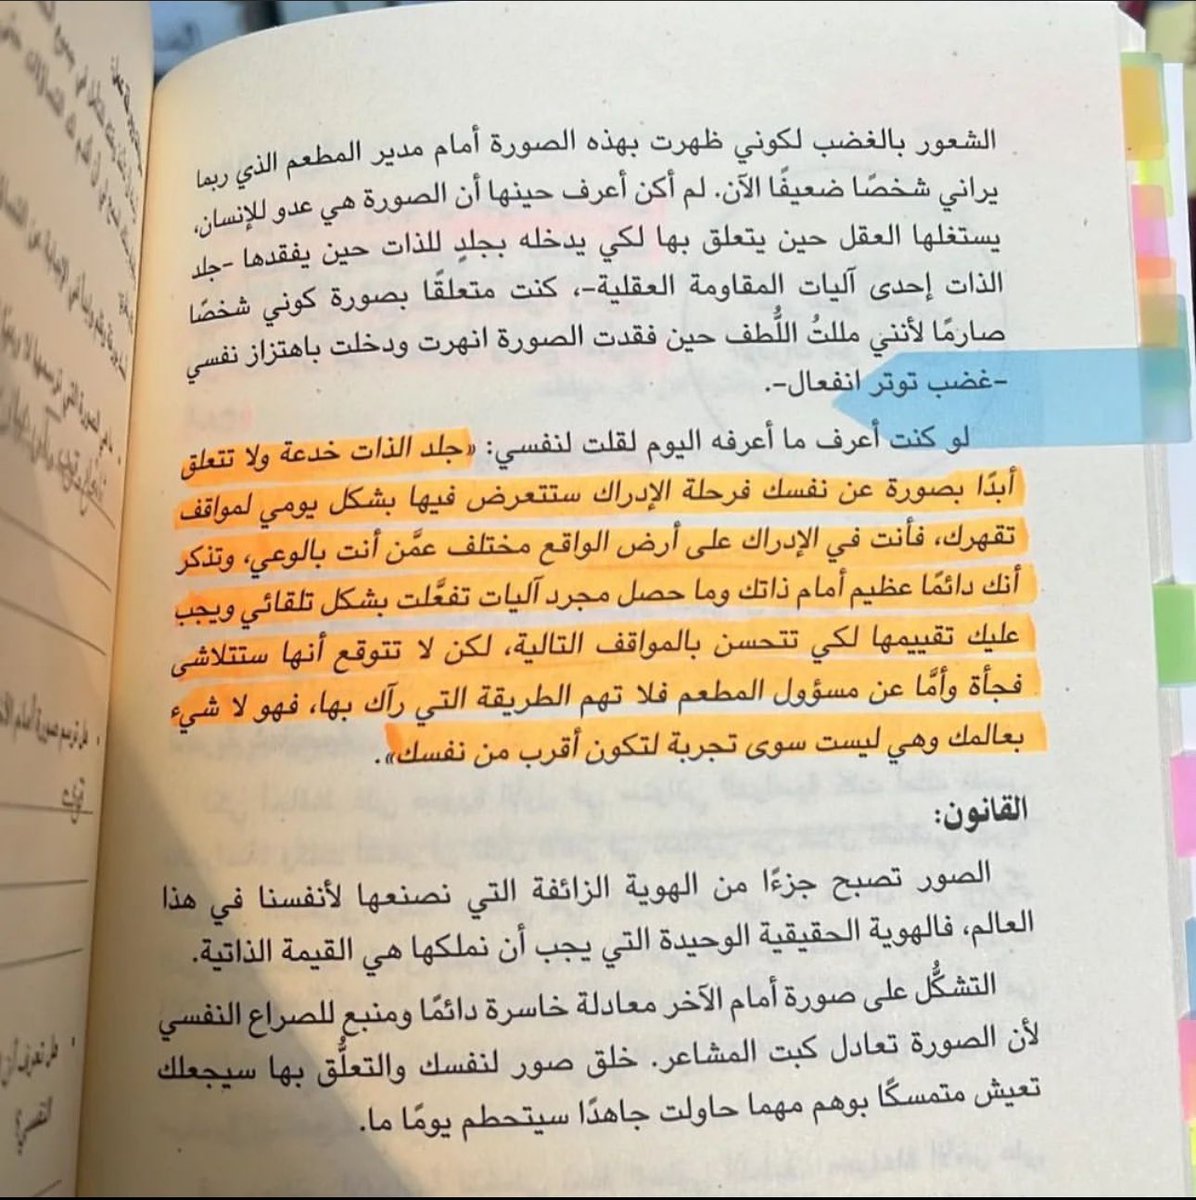 الشعور بالغضب لكوني ظهرت بهذه الصورة أمام مدير المطعم الذي ربما
يراني شخصًا ضعيفًا الآن. لم أكن أعرف حينها أن الصورة هي عدو للإنسان،
يستغلها العقل حين يتعلق بها لكي يدخله بجلدٍ للذات حين يفقدها -جلد
الذات إحدى آليات المقاومة العقلية-، كنت متعلقًا بصورة كوني شخصًا
صارمًا لأنني مللتُ اللُّطف حين فقدت الصورة انهرت ودخلت باهتزاز نفسي
-غضب توتر انفعال-.
لو كنت أعرف ما أعرفه اليوم لقلت لنفسي: «جلد الذات خدعة ولا تتعلق
أبدًا بصورة عن نفسك فرحلة الإدراك ستتعرض فيها بشكل يومي لمواقف
تقهرك، فأنت في الإدراك على أرض الواقع مختلف عمَّن أنت بالوعي، وتذكر
أنك دائمًا عظيم أمام ذاتك وما حصل مجرد آليات تفعَّلت بشكل تلقائي ويجب
عليك تقييمها لكي تتحسن بالمواقف التالية، لكن لا تتوقع أنها ستتلاشى
فجأة وأمَّا عن مسؤول المطعم فلا تهم الطريقة التي رآك بها، فهو لا شيء
بعالمك وهي ليست سوى تجربة لتكون أقرب من نفسك».
القانون:
الصور تصبح جزءًا من الهوية الزائفة التي نصنعها لأنفسنا في هذا
العالم، فالهوية الحقيقية الوحيدة التي يجب أن نملكها هي القيمة الذاتية.
التشكُّل على صورة أمام الآخر معادلة خاسرة دائمًا ومنبع للصراع النفسي
لأن الصورة تعادل كبت المشاعر. خلق صور لنفسك والتعلُّق بها سيجعلك
تعيش متمسكًا بوهم مهما حاولت جاهدًا سيتحطم يومًا ما.